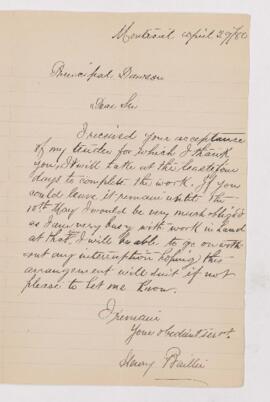 Montreal April 29/80
Principal Dawson
Dear Sir
I received your acceptance
of my tender for which I thank
you, It will take at the least four
days to complete the work. If you
could leave it remain until the
10th May I would be very much obliged
as I am very busy with work in hand
at that, I will be able to go on with
out any interruption hoping this
arrangement will suit if not
please to let me know.
I remain
Your obedient servt.
Henry Baillie